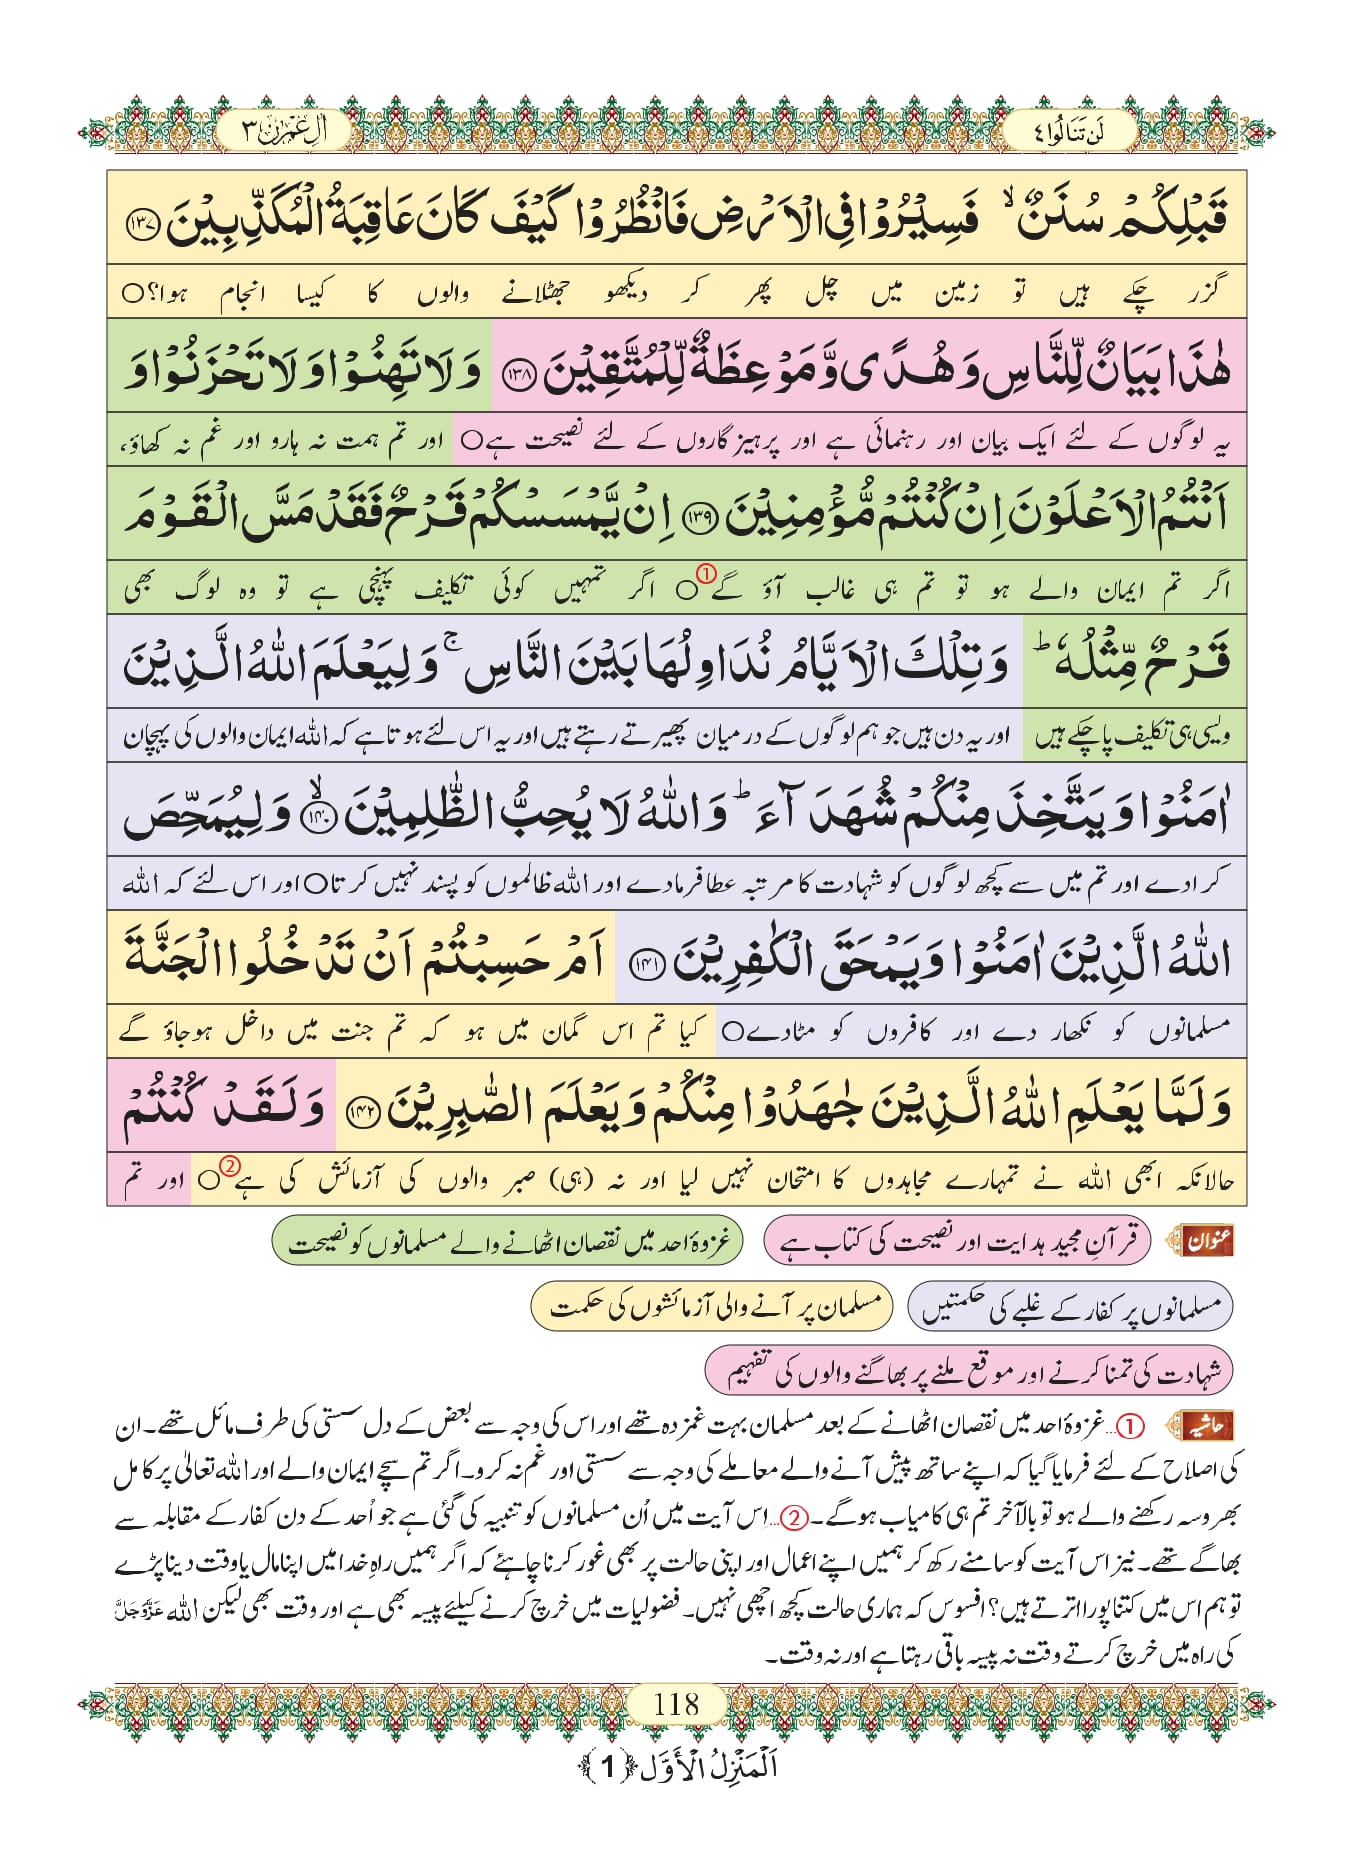 لَنْ تَنَالُوا ٤
اٰلِ عِمْرٰن ٣
قَبْلِكُمْ سُنَنٌ ۙ فَسِیْرُوْا فِی الْاَرْضِ فَانْظُرُوْا كَیْفَ كَانَ عَاقِبَةُ الْمُكَذِّبِیْنَ ﴿۱۳۷﴾
گزر چکے ہیں تو زمین میں چل پھر کر دیکھو جھٹلانے والوں کا کیسا انجام ہوا؟○
هٰذَا بَیَانٌ لِّلنَّاسِ وَ هُدًی وَّ مَوْعِظَةٌ لِّلْمُتَّقِیْنَ ﴿۱۳۸﴾ وَ لَا تَهِنُوْا وَ لَا تَحْزَنُوْا وَ
یہ لوگوں کے لئے ایک بیان اور رہنمائی ہے اور پرہیزگاروں کے لئے نصیحت ہے○ اور تم ہمت نہ ہارو اور غم نہ کھاؤ،
اَنْتُمُ الْاَعْلَوْنَ اِنْ كُنْتُمْ مُّؤْمِنِیْنَ ﴿۱۳۹﴾ اِنْ یَّمْسَسْكُمْ قَرْحٌ فَقَدْ مَسَّ الْقَوْمَ
اگر تم ایمان والے ہو تو تم ہی غالب آؤ گے①○ اگر تمہیں کوئی تکلیف پہنچی ہے تو وہ لوگ بھی
قَرْحٌ مِّثْلُهٗ ؕ وَ تِلْكَ الْاَیَّامُ نُدَاوِلُهَا بَیْنَ النَّاسِ ۚ وَ لِیَعْلَمَ اللّٰهُ الَّذِیْنَ
ویسی ہی تکلیف پا چکے ہیں اور یہ دن ہیں جو ہم لوگوں کے درمیان پھیرتے رہتے ہیں اور یہ اس لئے ہوتا ہے کہ اللہ ایمان والوں کی پہچان
اٰمَنُوْا وَ یَتَّخِذَ مِنْكُمْ شُهَدَآءَ ؕ وَ اللّٰهُ لَا یُحِبُّ الظّٰلِمِیْنَ ﴿۱۴۰﴾ ۙ وَ لِیُمَحِّصَ
کرادے اور تم میں سے کچھ لوگوں کو شہادت کا مرتبہ عطا فرمادے اور اللہ ظالموں کو پسند نہیں کرتا○ اور اس لئے کہ اللہ
اللّٰهُ الَّذِیْنَ اٰمَنُوْا وَ یَمْحَقَ الْكٰفِرِیْنَ ﴿۱۴۱﴾ اَمْ حَسِبْتُمْ اَنْ تَدْخُلُوا الْجَنَّةَ
مسلمانوں کو نکھار دے اور کافروں کو مٹادے○ کیا تم اس گمان میں ہو کہ تم جنت میں داخل ہوجاؤ گے
وَ لَمَّا یَعْلَمِ اللّٰهُ الَّذِیْنَ جٰهَدُوْا مِنْكُمْ وَ یَعْلَمَ الصّٰبِرِیْنَ ﴿۱۴۲﴾ وَ لَقَدْ كُنْتُمْ
حالانکہ ابھی اللہ نے تمہارے مجاہدوں کا امتحان نہیں لیا اور نہ (ہی) صبر والوں کی آزمائش کی ہے②○ اور تم
عنوان قرآنِ مجید ہدایت اور نصیحت کی کتاب ہے غزوۂ احد میں نقصان اٹھانے والے مسلمانوں کو نصیحت
مسلمانوں پر کفار کے غلبے کی حکمتیں مسلمان پر آنے والی آزمائشوں کی حکمت
شہادت کی تمنا کرنے اور موقع ملنے پر بھاگنے والوں کی تفہیم
حاشیہ ①...غزوۂ احد میں نقصان اٹھانے کے بعد مسلمان بہت غمزدہ تھے اور اس کی وجہ سے بعض کے دل سستی کی طرف مائل تھے۔ ان
کی اصلاح کے لئے فرمایا گیا کہ اپنے ساتھ پیش آنے والے معاملے کی وجہ سے سستی اور غم نہ کرو۔ اگر تم سچے ایمان والے اور اللہ تعالیٰ پر کامل
بھروسہ رکھنے والے ہو تو بالآخر تم ہی کامیاب ہوگے۔ ②...اِس آیت میں اُن مسلمانوں کو تنبیہ کی گئی ہے جو اُحد کے دن کفار کے مقابلہ سے
بھاگے تھے۔ نیز اس آیت کو سامنے رکھ کر ہمیں اپنے اعمال اور اپنی حالت پر بھی غور کرنا چاہئے کہ اگر ہمیں راہِ خدا میں اپنا مال یا وقت دینا پڑے
تو ہم اس میں کتنا پورا اترتے ہیں؟ افسوس کہ ہماری حالت کچھ اچھی نہیں۔ فضولیات میں خرچ کرنے کیلئے پیسہ بھی ہے اور وقت بھی لیکن اللہ عَزَّوَجَلَّ
کی راہ میں خرچ کرتے وقت نہ پیسہ باقی رہتا ہے اور نہ وقت۔
118
اَلْمَنْزِلُ الْأَوَّل ﴿1﴾